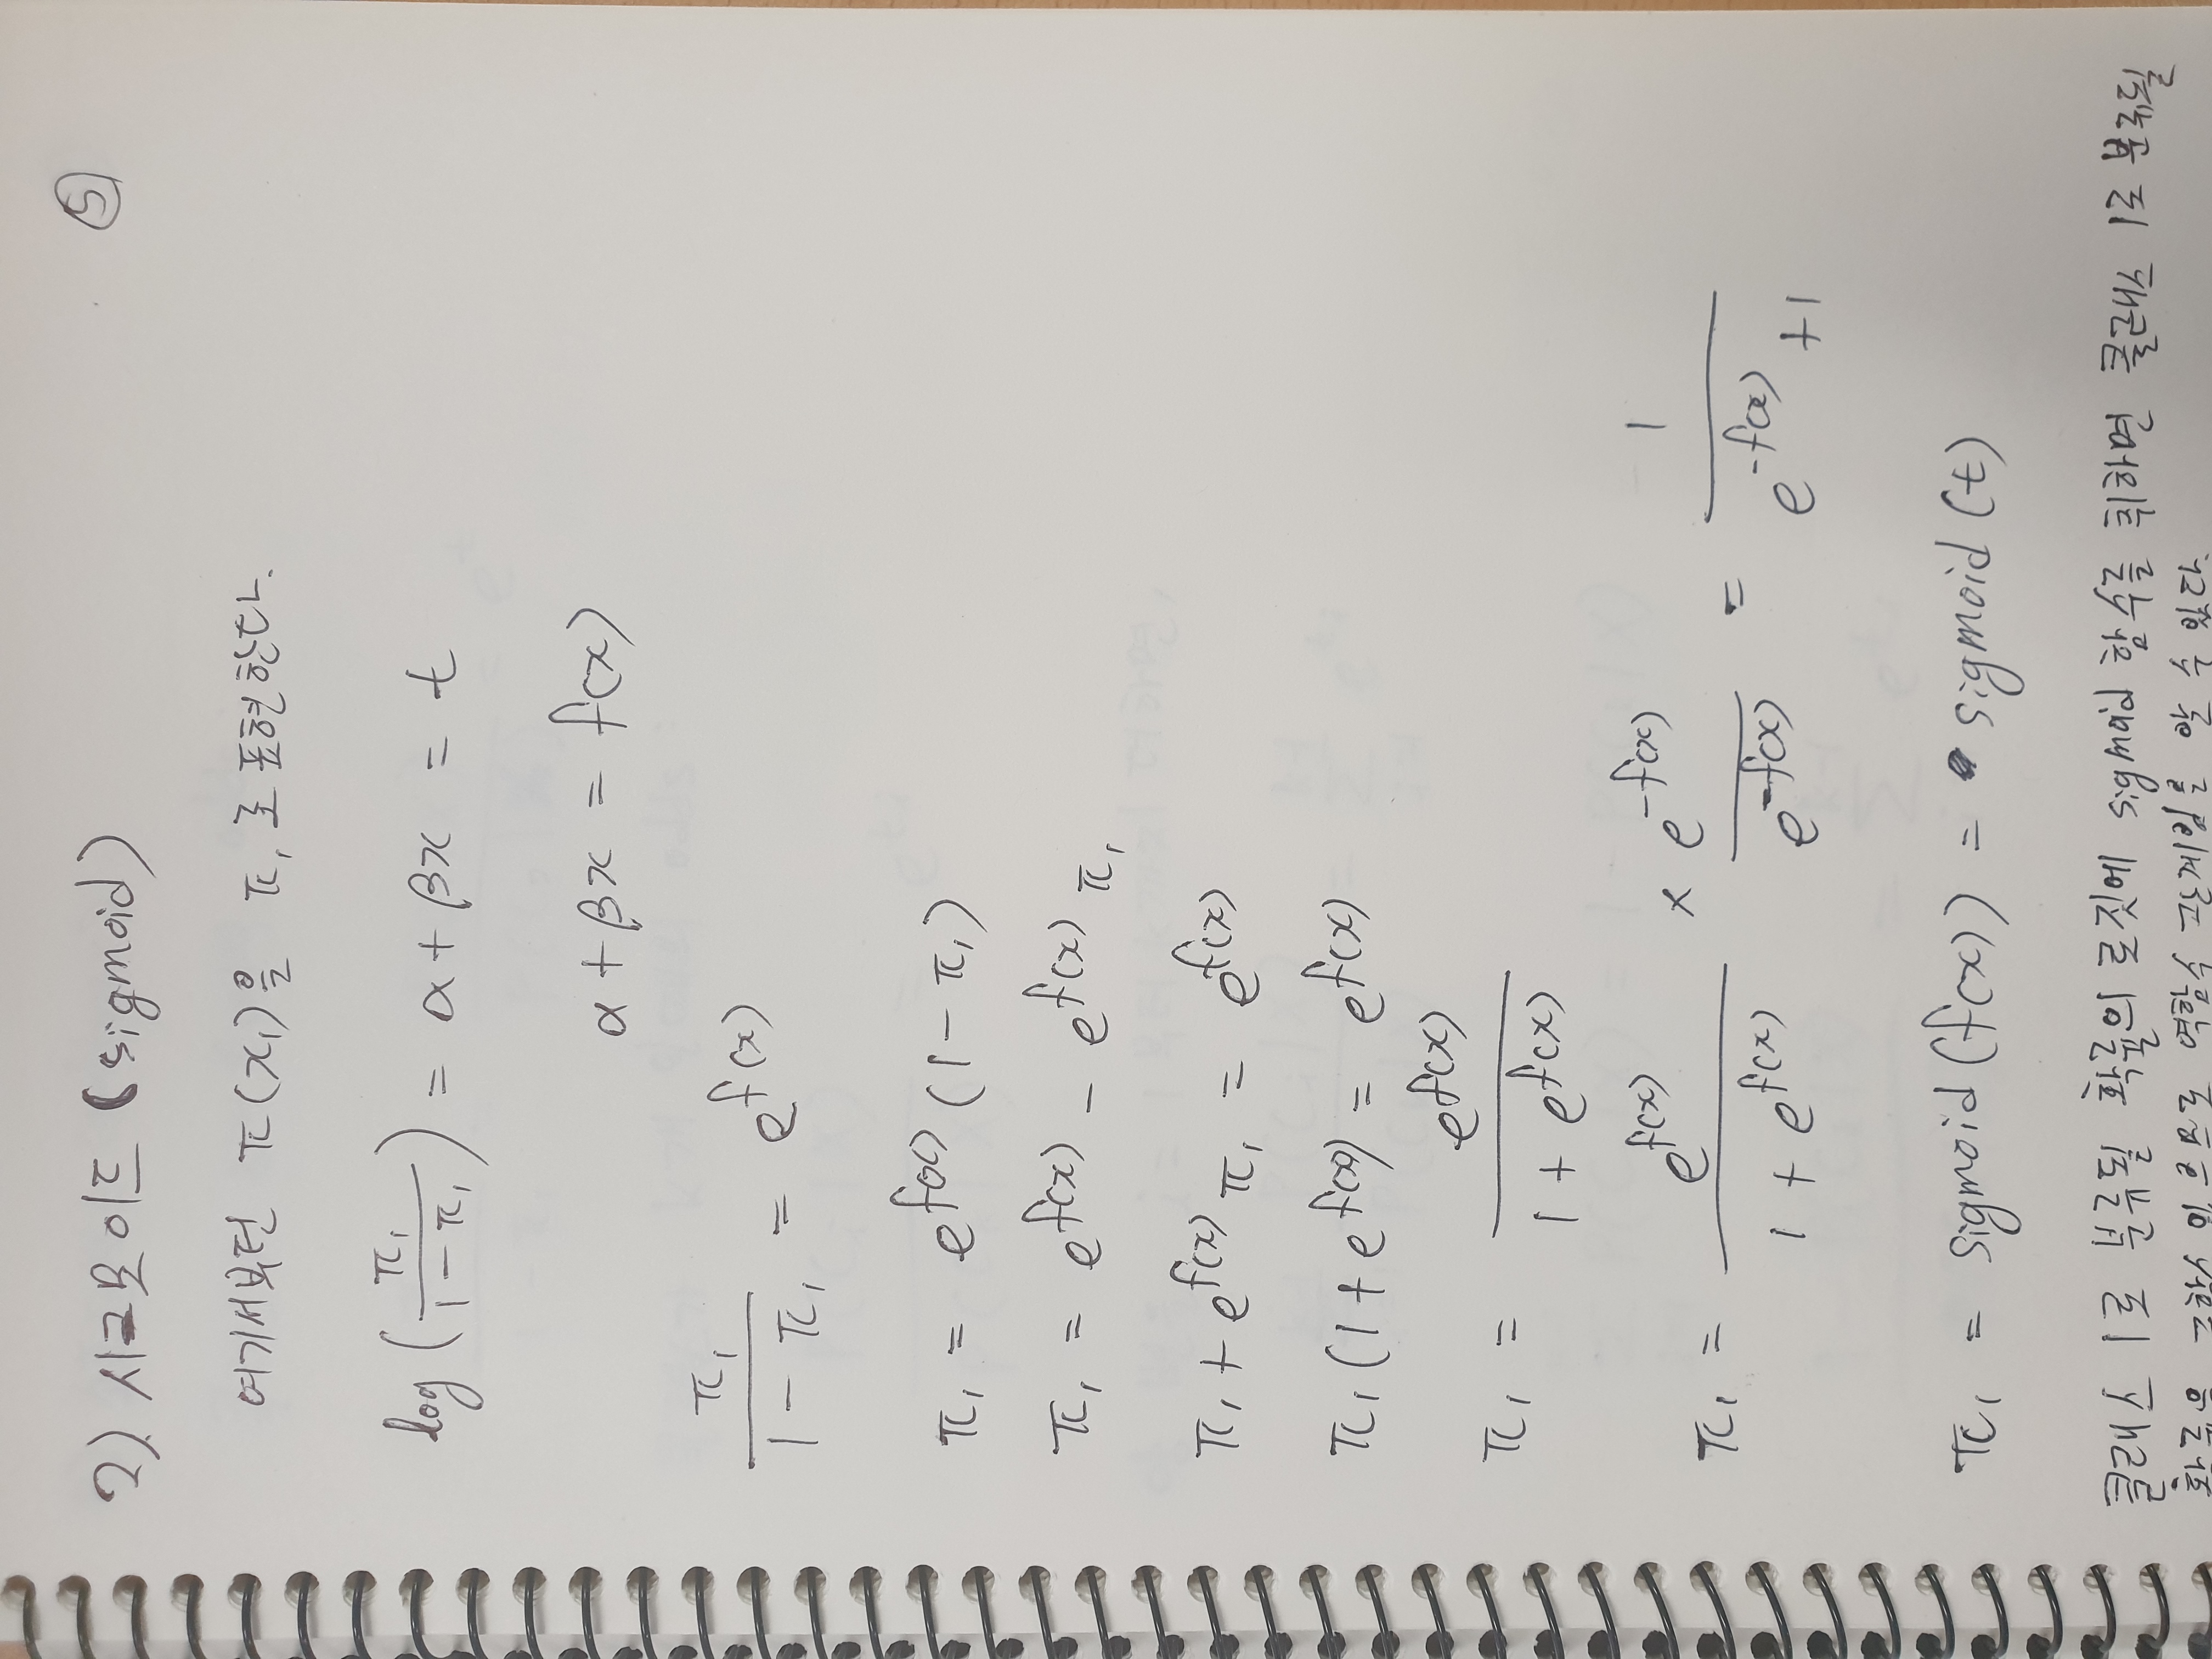 ⑤
2) 시그모이드 (sigmoid)
여기서부턴 π(x₁)을 π₁로 표현한다.
log(π₁/(1-π₁)) = α+βx = t
α+βx = f(x)
π₁/(1-π₁) = e^f(x)
π₁ = e^f(x) (1-π₁)
π₁ = e^f(x) - e^f(x) π₁
π₁ + e^f(x) π₁ = e^f(x)
π₁(1+e^f(x)) = e^f(x)
π₁ = e^f(x)/(1+e^f(x))
π₁ = e^f(x)/(1+e^f(x)) × e^-f(x)/e^-f(x) = 1/(e^-f(x) +1)
π₁ = sigmoid(f(x)) = sigmoid(t)
클래스 1로 분류될 확률의 로짓에 sigmoid 함수를 취하면 클래스 1로 분류될
확률을 구할수 있으므로 역함수 관계임을 알 수 있다.